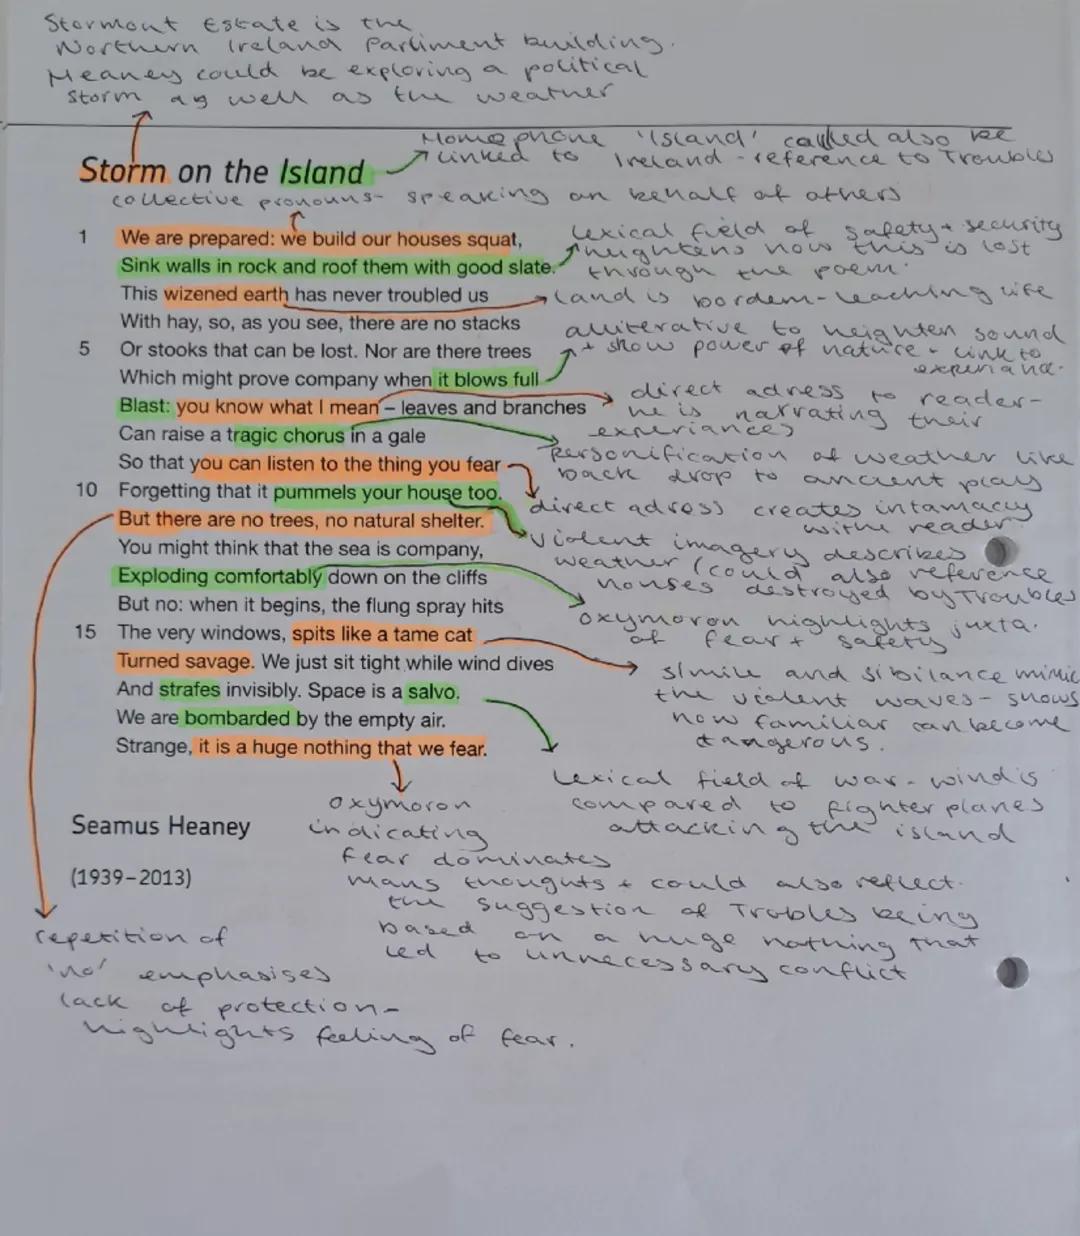 Stormont Estate is the
Northern Ireland Parliment building.
Heaney could be exploring a political
storm as well as the weather
Homophone 'Island' called also be
linked to Ireland - reference to Troubles
Storm on the Island
collective pronouns- speaking on behalf of others
1 We are prepared: we build our houses squat,
Sink walls in rock and roof them with good slate.
This wizened earth has never troubled us
With hay, so, as you see, there are no stacks
5 Or stooks that can be lost. Nor are there trees
Which might prove company when it blows full
Blast: you know what I mean – leaves and branches
Can raise a tragic chorus in a gale
So that you can listen to the thing you fear
10 Forgetting that it pummels your house too.
But there are no trees, no natural shelter.
You might think that the sea is company,
Exploding comfortably down on the cliffs
But no: when it begins, the flung spray hits
15 The very windows, spits like a tame cat
Turned savage. We just sit tight while wind dives
And strafes invisibly. Space is a salvo.
We are bombarded by the empty air.
Strange, it is a huge nothing that we fear.
lexical field of safety + security
heightens how this is lost
through the poem.
land is bordem-leaching life
alliterative to heighten sound
+ show power of nature - link to
experiance.
direct adress to reader-
he is narrating their
experiances
personification of weather like
back drop to ancient play
direct adress creates intamacy
with reader
violent imagery describes
weather (could also reference
houses destroyed by Troubles
oxymoron highlights juxta.
of fear + safety
simile and sibilance mimic
the violent waves - shows
how familiar can become
dangerous.
lexical field of war - wind is
compared to fighter planes
attacking the island
Seamus Heaney
(1939–2013)
oxymoron
indicating
fear dominates
mans thoughts + could also reflect.
the suggestion of Trobles being
based on a huge nothing that
led to unnecessary conflict
repetition of
'no' emphasises
lack of protection-
highlights feeling of fear.